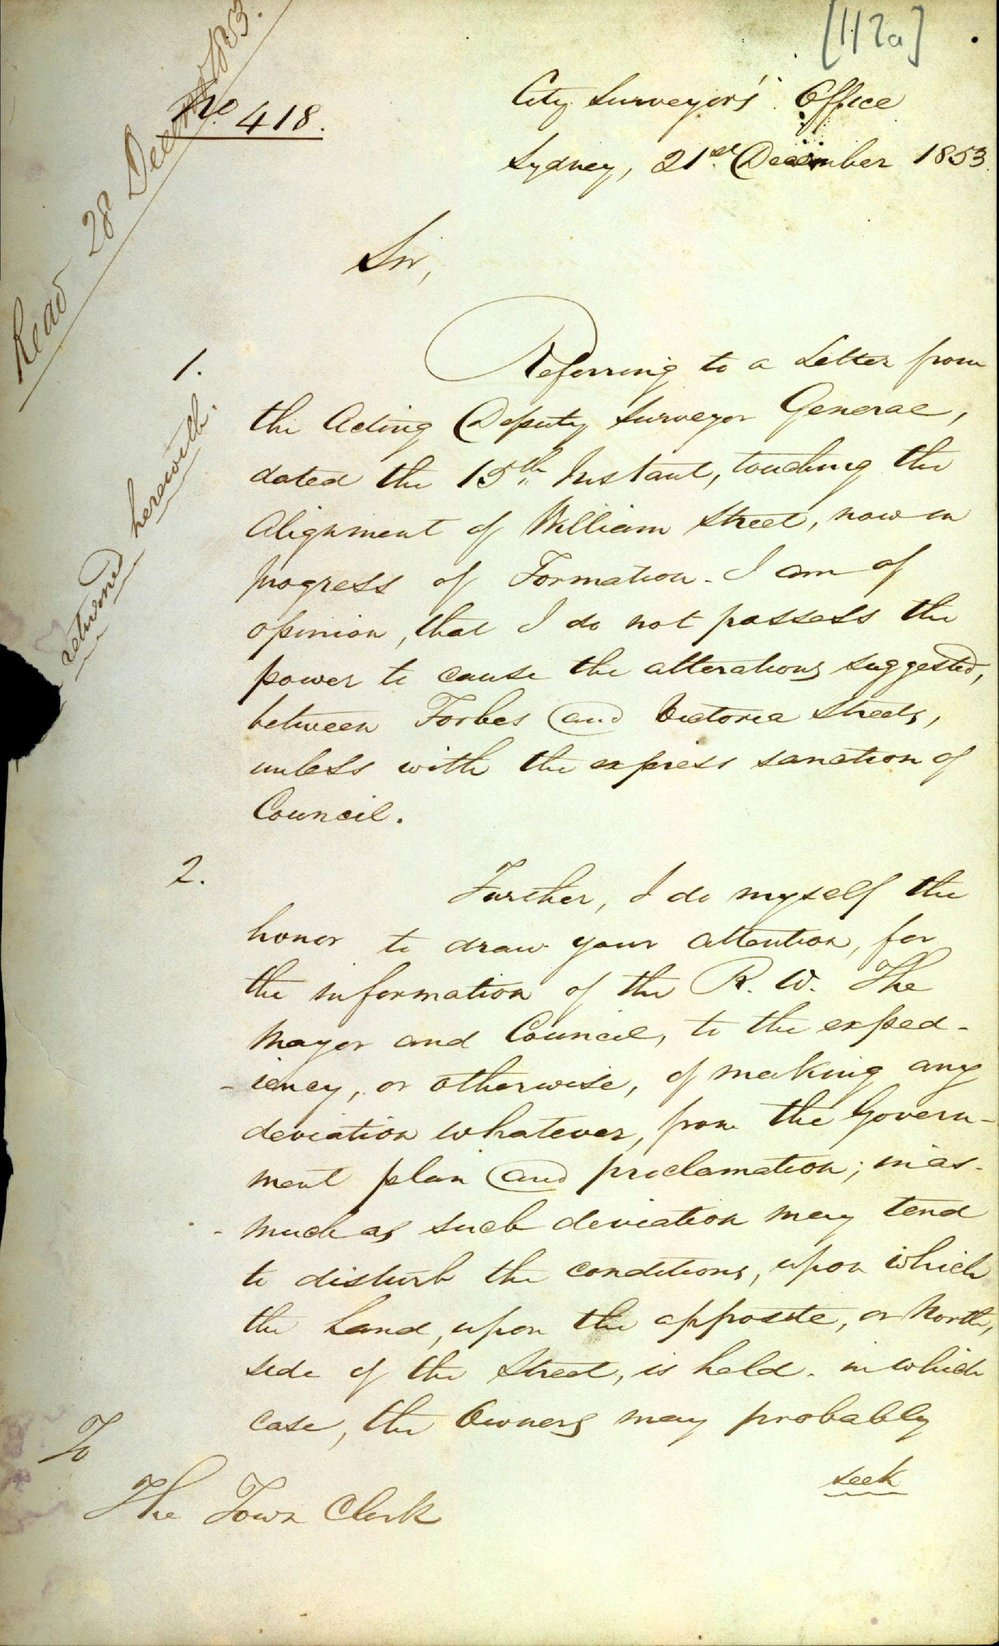 [112a]
Read 28 December 1853.
No. 418.
City Surveyors' Office
Sydney, 21st December 1853
Sir,
1. Referring to a Letter from
the Acting Deputy Surveyor General,
dated the 15th Instant, touching the
Alignment of William Street, now in
progress of Formation. I am of
opinion, that I do not possess the
power to cause the alterations suggested,
between Forbes and Victoria Streets,
unless with the express sanction of
Council.
returned herewith.
2. Further, I do myself the
honor to draw your attention, for
the information of the R. W. The
Mayor and Council, to the exped-
-iency, or otherwise, of making any
deviation whatever, from the Govern-
ment plan and proclamation; inas-
-much as such deviation may tend
to disturb the conditions, upon which
the Land, upon the opposite, or North,
side of the Street, is held. in which
case, the Owners may probably
seek
To
The Town Clerk